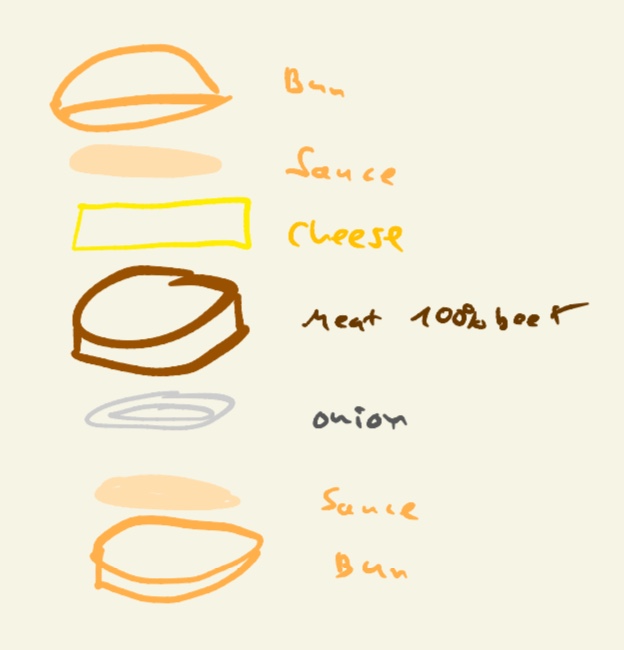 Bun
Sauce
Cheese
Meat 100% beef
onion
Sauce
Bun